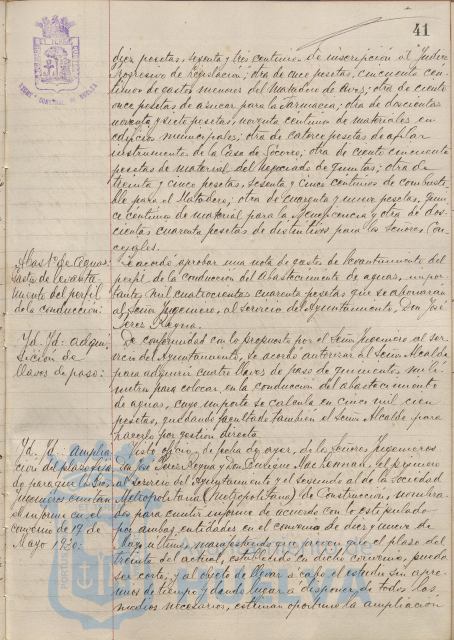 41
diez pesetas, sesenta y tres centimos de inscripción al Indice
Progresivo de Legislación; otra de once pesetas, cincuenta cen-
timos de gastos menores del Matadero de Aves; otra de ciento
once pesetas de azucar para la Farmacia; otra de doscientas
noventa y siete pesetas, noventa centimos de materiales en
edificios municipales; otra de catorce pesetas de afilar
instrumentos de la Casa de Socorro; otra de ciento cincuenta
pesetas de material del Negociado de Quintas; otra de
treinta y cinco pesetas, sesenta y cinco centimos de combusti-
ble para el Matadero; otra de cuarenta y nueve pesetas, quin-
ce centimos de material para la Beneficencia y otra de dos-
cientas cuarenta pesetas de distintivos para los Señores Con-
cejales.
Abastº de Aguas:
Gasto de levanta-
miento del perfil
de la conducción:
Se acordó aprobar una nota de gastos de levantamiento del
perfil de la conducción del Abastecimiento de aguas, impor-
tante mil cuatrocientas cuarenta pesetas que se abonarán
al Señor Ingeniero, al servicio del Ayuntamiento, Don José
Perez Reyna.
Yd. Yd: adqui-
sición de
llaves de paso:
De conformidad con lo propuesto por el Señor Ingeniero al ser-
vicio del Ayuntamiento, se acordó autorizar al Señor Alcalde
para adquirir cuatro llaves de paso de quinientos milí-
metros para colocar en la conducción del abastecimiento
de aguas, cuyo importe se calcula en cinco mil cien
pesetas, quedando facultado también el Señor Alcalde para
hacerlo por gestión directa.
Yd. Yd: Amplia-
ción del plazo fija-
do para que los Srs.
Ingenieros emitan
el informe en el
convenio de 19 de
Mayo 1930:
Visto oficio, de fecha de ayer, de los Señores Ingenieros
Don José Perez Reyna y Don Enrique Mac-Lennan, el primero
al servicio del Ayuntamiento y el segundo al de la Sociedad
Metropolitaria (Metropolitana) de Construcción, nombra-
dos para emitir informe de acuerdo con lo estipulado
por ambas entidades en el convenio de diez y nueve de
Mayo último, manifestando que creen que el plazo del
treinta del actual, establecido en dicho convenio, pueda
ser corto, y al objeto de llevar a cabo el estudio sin apre-
mios de tiempo y dando lugar a disponer de todos los
medios necesarios, estiman oportuno la ampliación